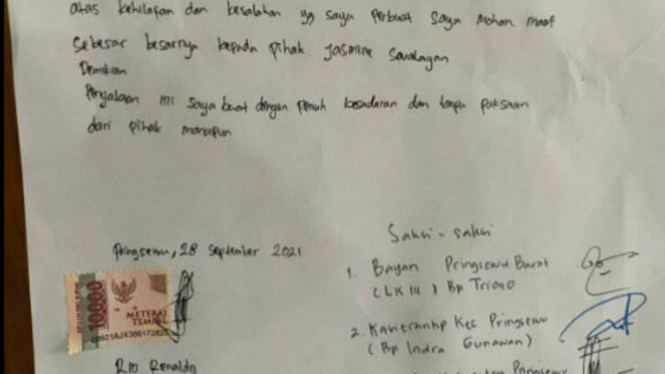 atas kehilafan dan kesalahan yg saya perbuat saya Mohon maaf
Sebesar besarnya kepada pihak Jasmine Swalayan
Demikian
Penyataan ini saya buat dengan penuh kesadaran dan tanpa paksaan
dari pihak manapun
Pringsewu, 28 September 2021
10000
METERAI
TEMPEL
Rio Renaldo
Saksi - saksi
1. Bayan Pringsewu Barat
(LK III) Bp Triono
2. Kec Pringsewu
(Bp Indra Gunawan)
Pringsewu